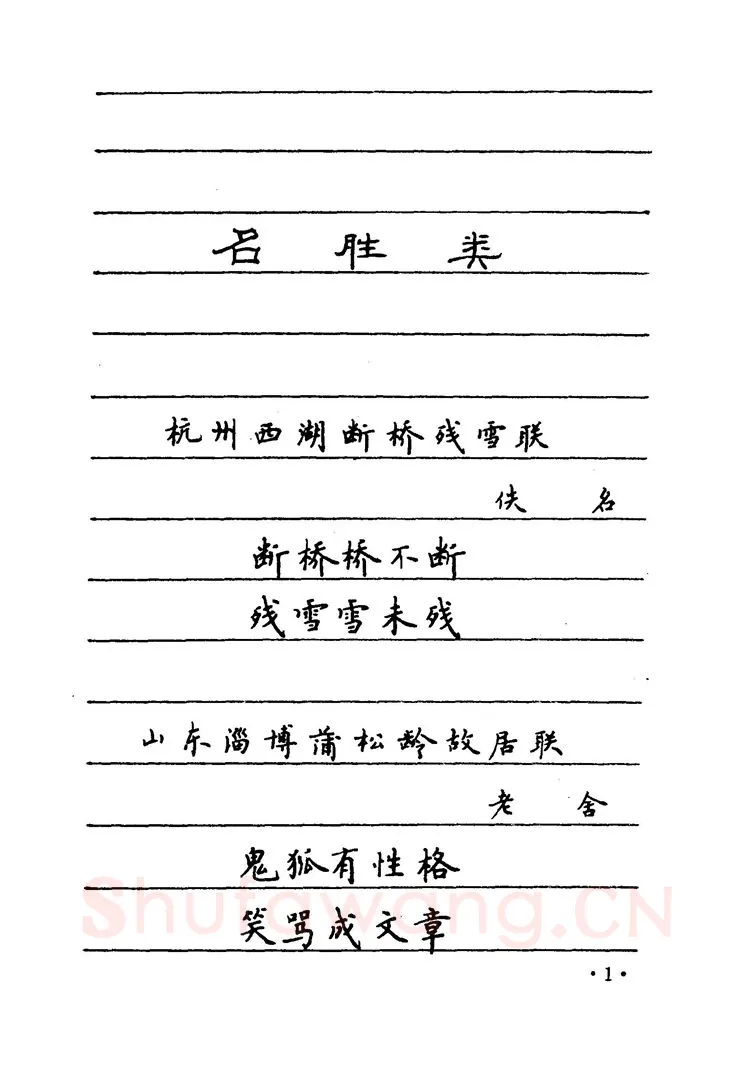 名胜类
杭州西湖断桥残雪联
佚名
断桥桥不断
残雪雪未残
山东淄博蒲松龄故居联
老舍
鬼狐有性格
笑骂成文章
Shufawang.CN
·1·